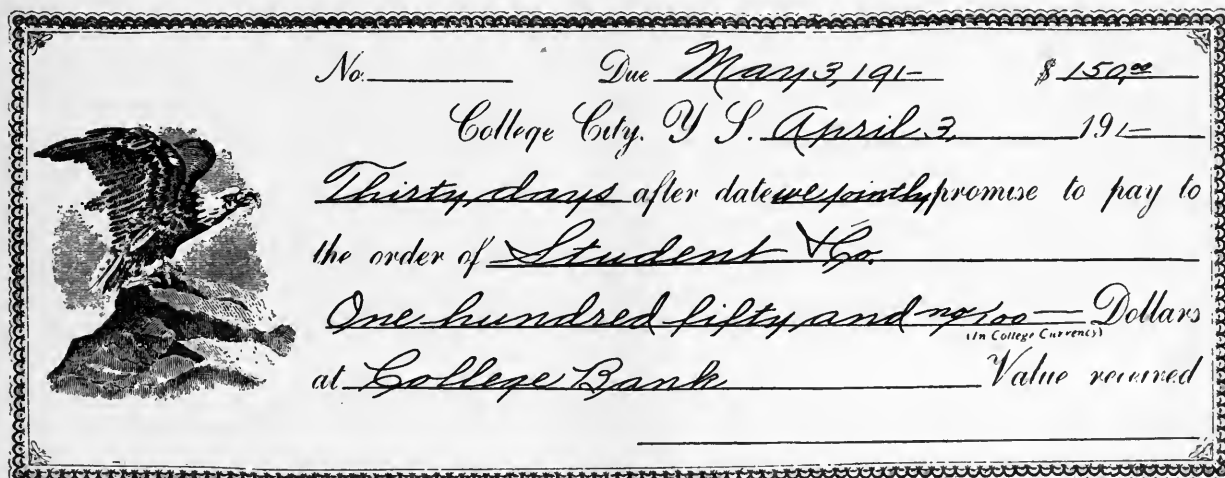 No. Due May 3, 191- $ 150.00
College City, Y S. April 3, 191-
Thirty days after date we jointly promise to pay to
the order of Student & Co.
One hundred fifty and no/100 — Dollars
(In College Currency)
at College Bank Value received